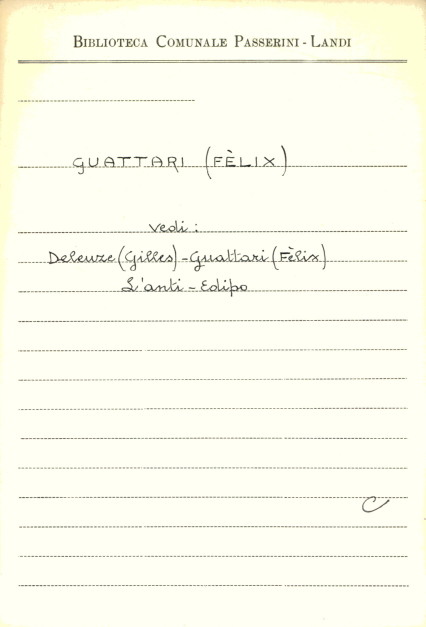 BIBLIOTECA COMUNALE PASSERINI - LANDI
GUATTARI (FÈLIX)
vedi :
Deleuze (Gilles) - Guattari (Fèlix)
L'anti - Edipo
C